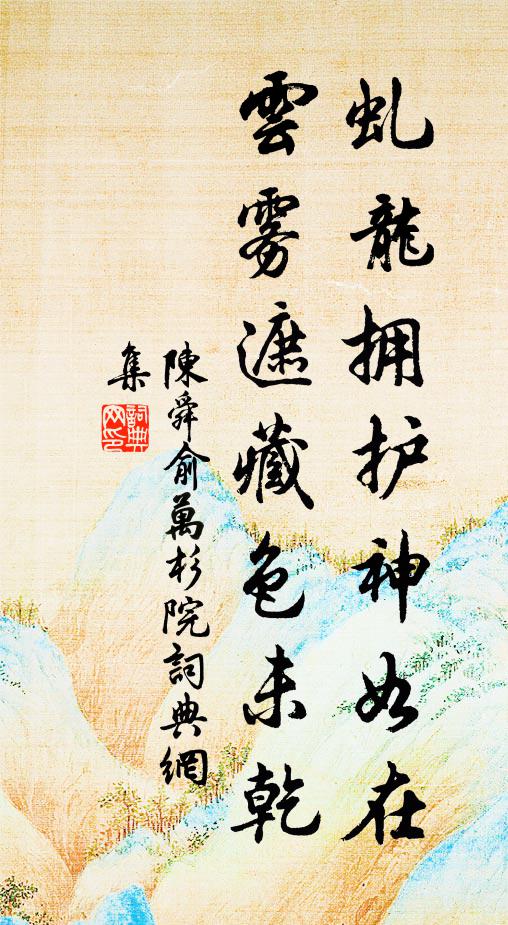 虬龍拥护神如在
雲雾遮藏色未乾
陳舜俞萬杉院詞典網
集
詞典
网印